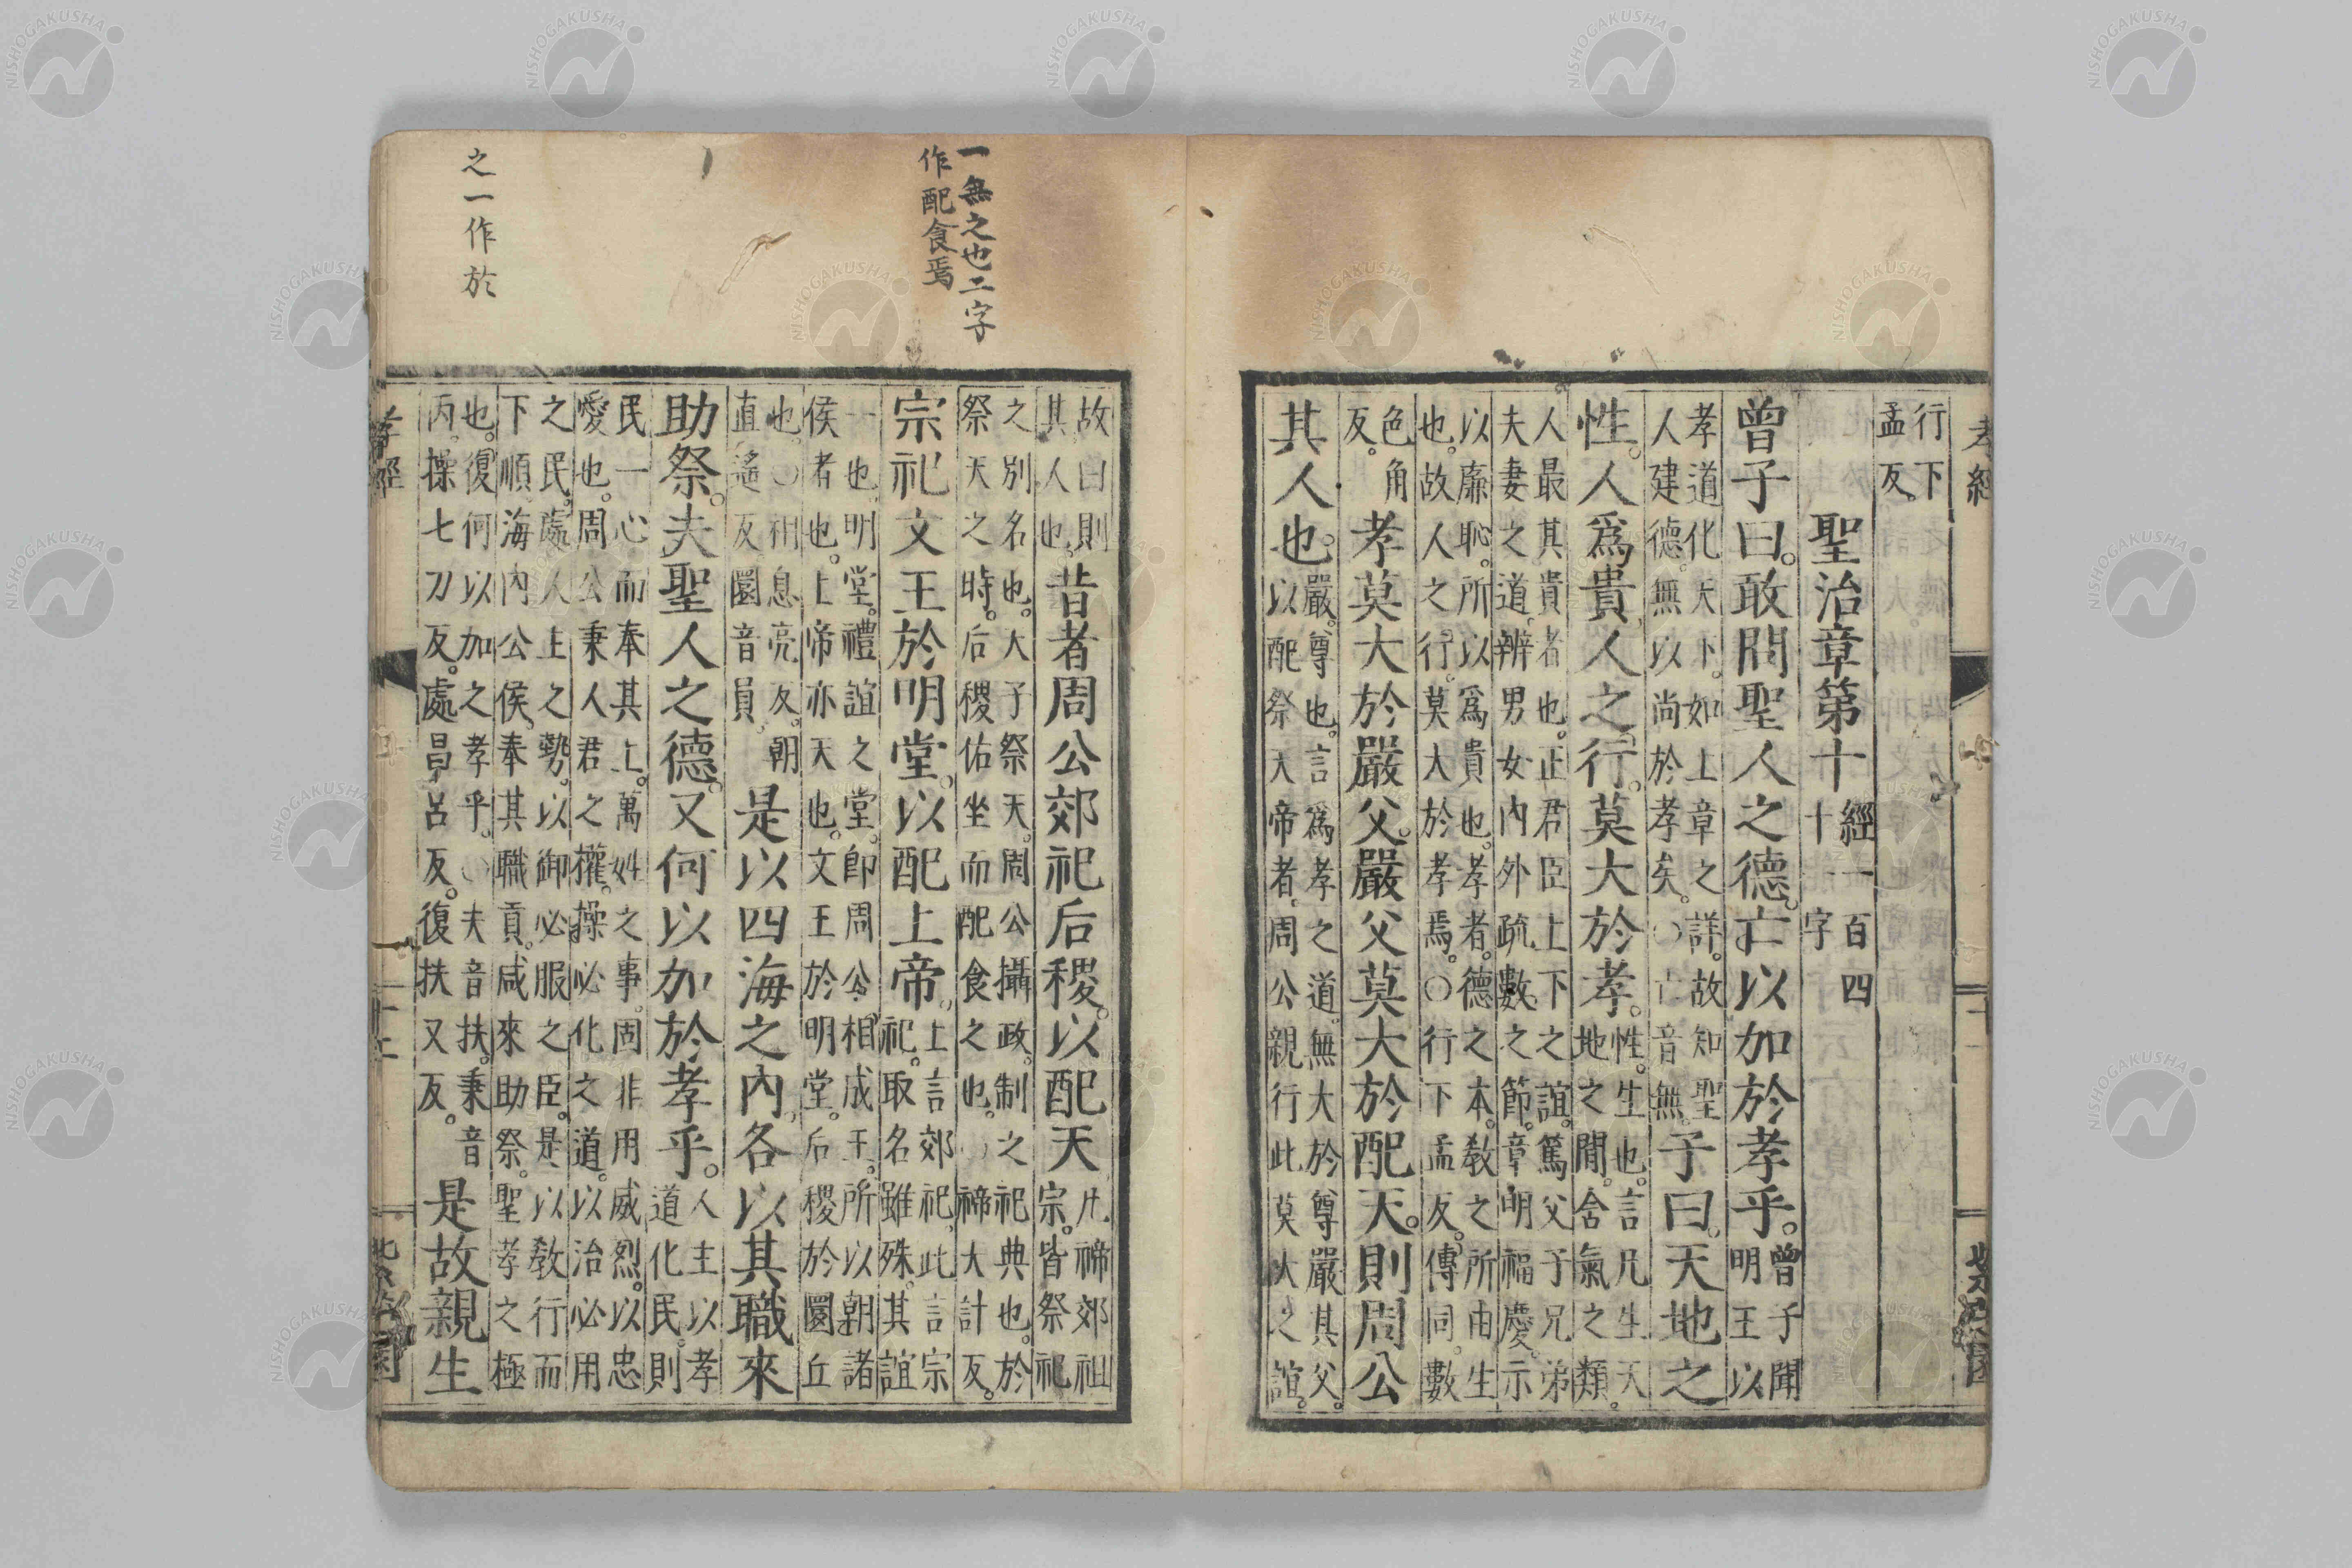 孝經
行下
孟反。
聖治章第十 經一百四
十一字
曾子曰。敢問聖人之德。亡以加於孝乎。曾子聞
明王以
孝道化天下。如上章之詳。故知聖
人建德。無以尚於孝矣。〇亡音無。子曰。天地之
性。人爲貴。人之行。莫大於孝。性。生也。言凡生天
地之閒。含氣之類。
人最其貴者也。正君臣上下之誼。篤父子兄弟
夫妻之道。辨男女內外疏數之節。章明福慶。示
以廉恥。所以爲貴也。孝者。德之本。敎之所由生
也。故人之行。莫大於孝焉。〇行下孟反。傳同。數
色角
反。孝莫大於嚴父。嚴父莫大於配天。則周公
其人也。嚴。尊也。言爲孝之道。無大於尊嚴其父。
以配祭天帝者。周公親行此莫大之誼。
一無之也二字
作配食焉
之一作於
故曰則
其人也。昔者周公郊祀后稷。以配天凡禘郊祖
宗。皆祭祀
之別名也。大子祭天。周公攝政。制之祀典也。於
祭天之時。后稷佑坐而配食之也。〇禘大計反。
宗祀文王於明堂。以配上帝。上言郊祀。此言宗
祀。取名雖殊。其誼
一也。明堂。禮誼之堂。卽周公相成王。所以朝諸
侯者也。上帝亦天也。文王於明堂。后稷於圜丘
也。〇相息亮反。朝
直遙反圜音員。是以四海之內。各以其職來
助祭。夫聖人之德。又何以加於孝乎。人主以孝
道化民。則
民一心而奉其上。萬姓之事。固非用威烈。以忠
愛也。周公秉人君之權。操必化之道。以治必用
之民。處人主之勢。以御必服之臣。是以敎行而
下順。海內公侯。奉其職貢。咸來助祭。聖孝之極
也。復何以加之孝乎。〇夫音扶。秉音
丙。操七刀反。處昌呂反。復扶又反。是故親生
孝經